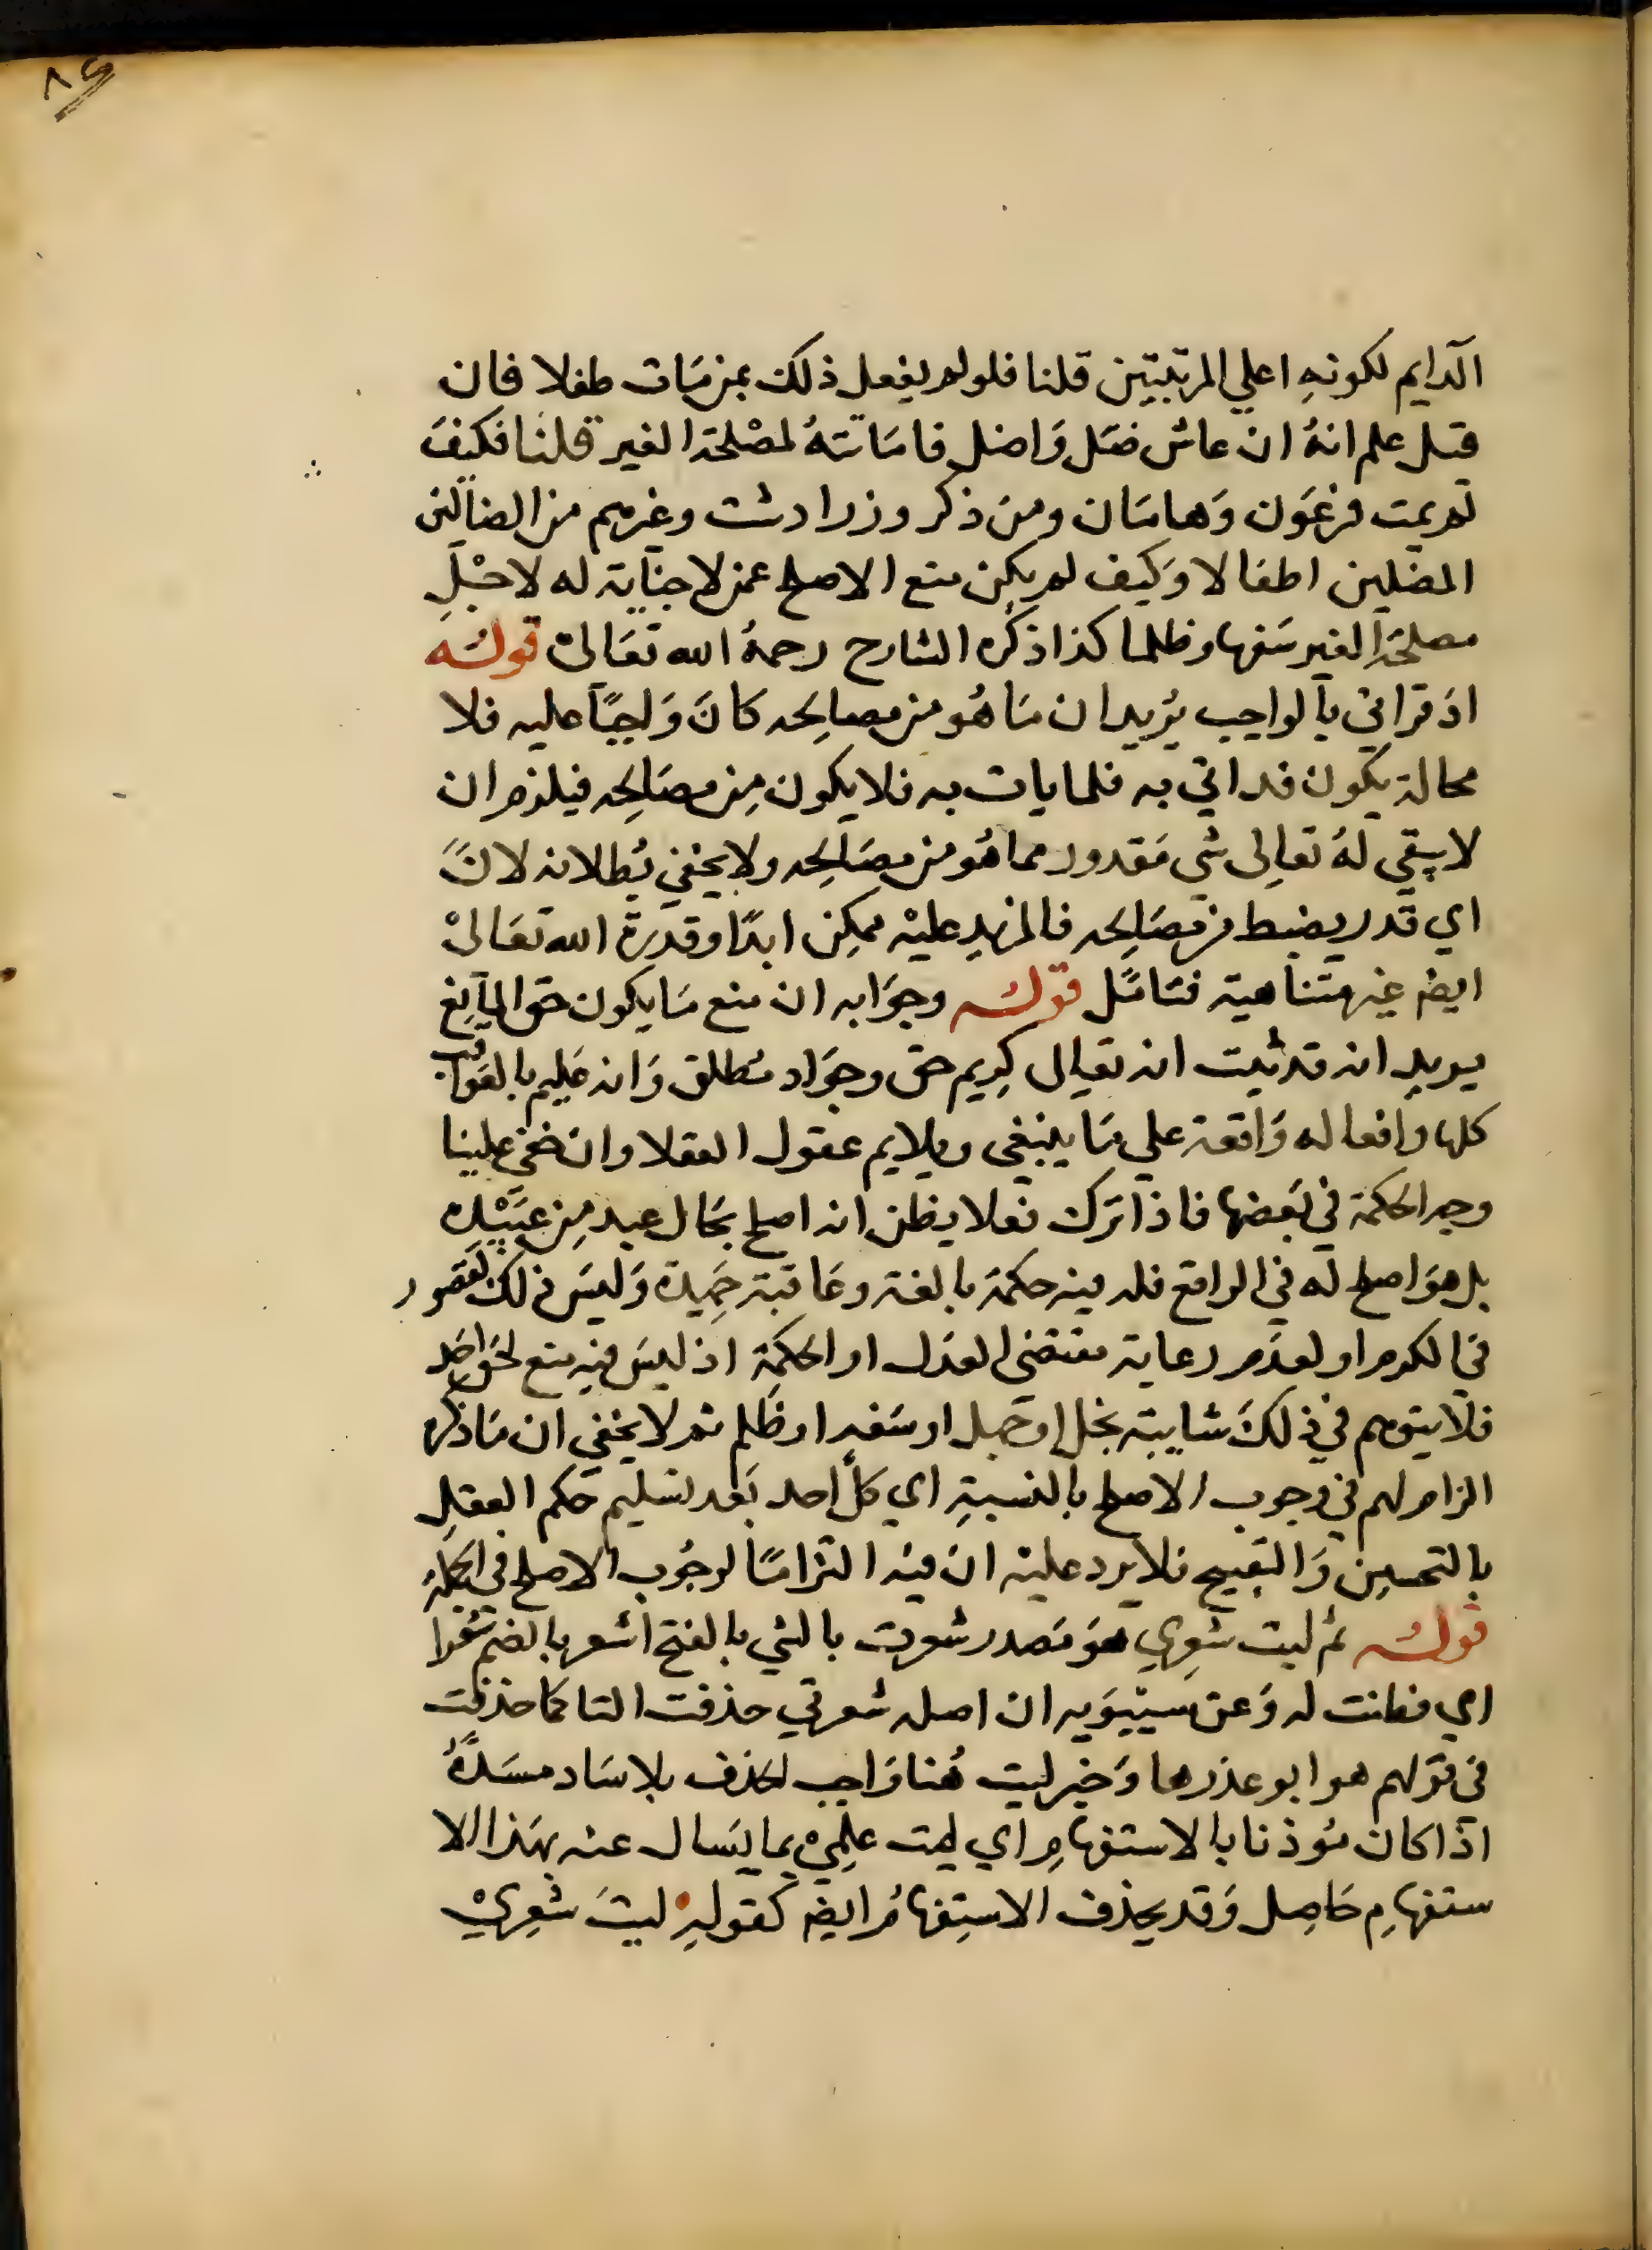 ٨٤
الدايم لكونهِ اعلي المرتبتين قلنا فلو لم يفعل ذلك بمن مَات طفلا فان
قيل علم انهُ ان عاش ضَل وَاضل فامَاتتهُ لمصْلحة الغير قلنا فكيفَ
لم يمت فرعَون وَهامَان ومن ذكر وزرادشت وغيرهم من الضالين
المضلين اطفالا وَكيف لم يكن منع الاصلح عمن لا جناية له لاجْلِ
مصلحة الغير سَفها وظلما كذا ذكره الشارح رحمهُ الله تعَالى قوله
اذ قد اتي بالواجب يُريد ان مَا هُو من مصالِحه كانَ وَاجبًا عليه فلا
محالة يكون قد اتي به فلما يات به فلا يكون مِن مصَالِحه فيلزم ان
لا يبقي لهُ تعالى شي مَقدور مما هُو من مصَالِحه ولا يخفي بُطلانه لانَّ
اي قدر يضبط من مصَالِحه فالمزيد عليْه ممكِن ابدًا وقدرة الله تعَالىْ
ايضا غير متناهية فتامَّل قوله وجوَابه ان منع مَا يكون حق المانِع
يريد انه قد ثبت انه تعالى كِريم حق وجوَاد مُطلق وَانه عَليم بالعَواقب
كلها وافعاله وَاقعة علي مَا ينبغي ويلايم عقول العقلا وان خفي علينا
وجه الحكمة في بَعضها فاذا ترك فعلا يظن انه اصلح بحَال عبد مِن عَبيْده
بل هوَ اصلح له في الواقع فله فيه حكمة بالغة وعَاقبة حَميدة وَليسَ ذلك لقصور
في الكرم او لعدَم رعاية مقتضي العدل او الحكمة اذ ليسَ فيه منع لحق احَد
فلا يتوهم في ذلكَ شايبة بخل او جهل او سَفه او ظلم ثم لا يخفي ان مَا ذكره
الزام لهم في وجوب الاصلح بالنسبةِ اي كل احد بَعد تسليم حكم العقلِ
بالتحسين وَالتقبيح فلا يرد عليْه ان فيه التزامًا لوجُوب الاصلح في الجملة
قوله ثم ليت شِعري هوَ مَصدر شعرت بالشي بالفتح اشعر بالضم شعْرا
اي فطنت له وَعن سيبَويه ان اصله شعرتي حذفت التا كما حذفت
في قوَلهم هو ابو عذرها وَخبر ليت هُنا وَاجب الحذف بلا سَاد مسَدّهُ
اذا كان مُوذنا بالاستفهامِ اي ليت علِميْ بما يسَال عنه بهَذا الا
ستفهامِ حَاصِل وَقد يحذف الاستِفهامُ ايضا كقولهِ ليتَ شعِريْ